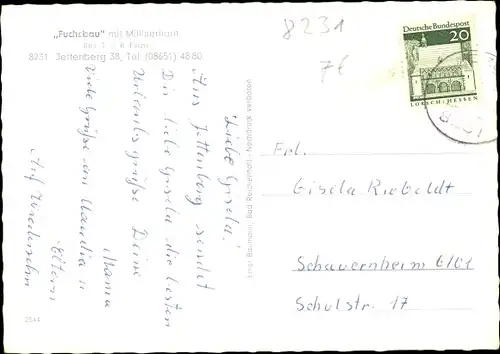 „Fuchsbau" mit Müllnerhorn
8231 Jettenberg 38, Tel. (08651) 4880
8231
76
Deutsche Bundespost
20
LORSCH/HESSEN
Liebe Gisela!
Aus Jettenberg sendet
Dir liebe Gisela die besten
Urlaubsgrüße Deine
Mama
Viele Grüße an Claudia u
Eltern
Auf Wiedersehn
2544
Frl.
Gisela Rieboldt
Schauernheim 6701
Schulstr. 17